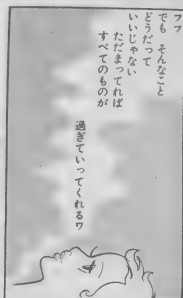 フフ
でも そんなこと
どうだって
いいじゃない
ただまってれば
すべてのものが
過ぎていってくれるワ